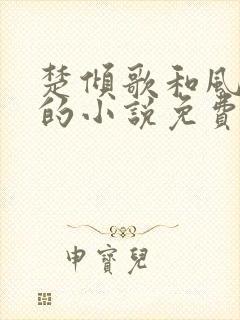 楚傾歌和風
的小說免費
申寶兒